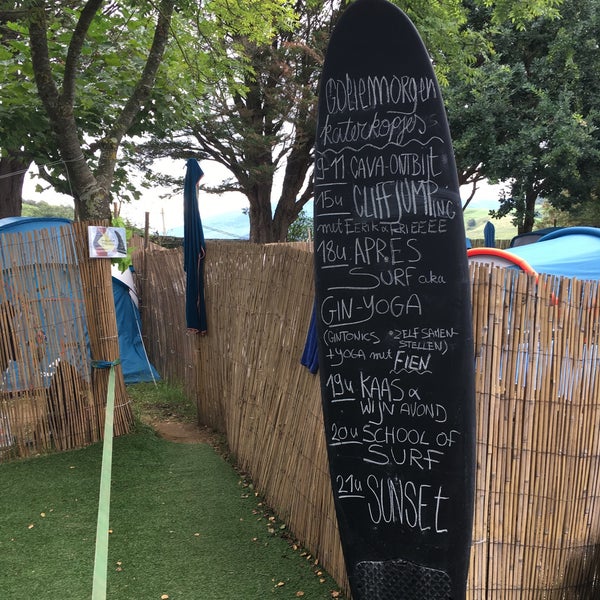 GOEIENMORGEN
katerkopjes
9-11 CAVA-ONTBIJT
15u CLIFFJUMPing
met EERIK & FRIEEEE
18u APRES
SURF aka
GIN-YOGA
(GINTONICS • ZELF SAMEN-
STELLEN)
+ YOGA met FIEN
19u KAAS &
WIJN AVOND
20u SCHOOL OF
SURF
21u SUNSET